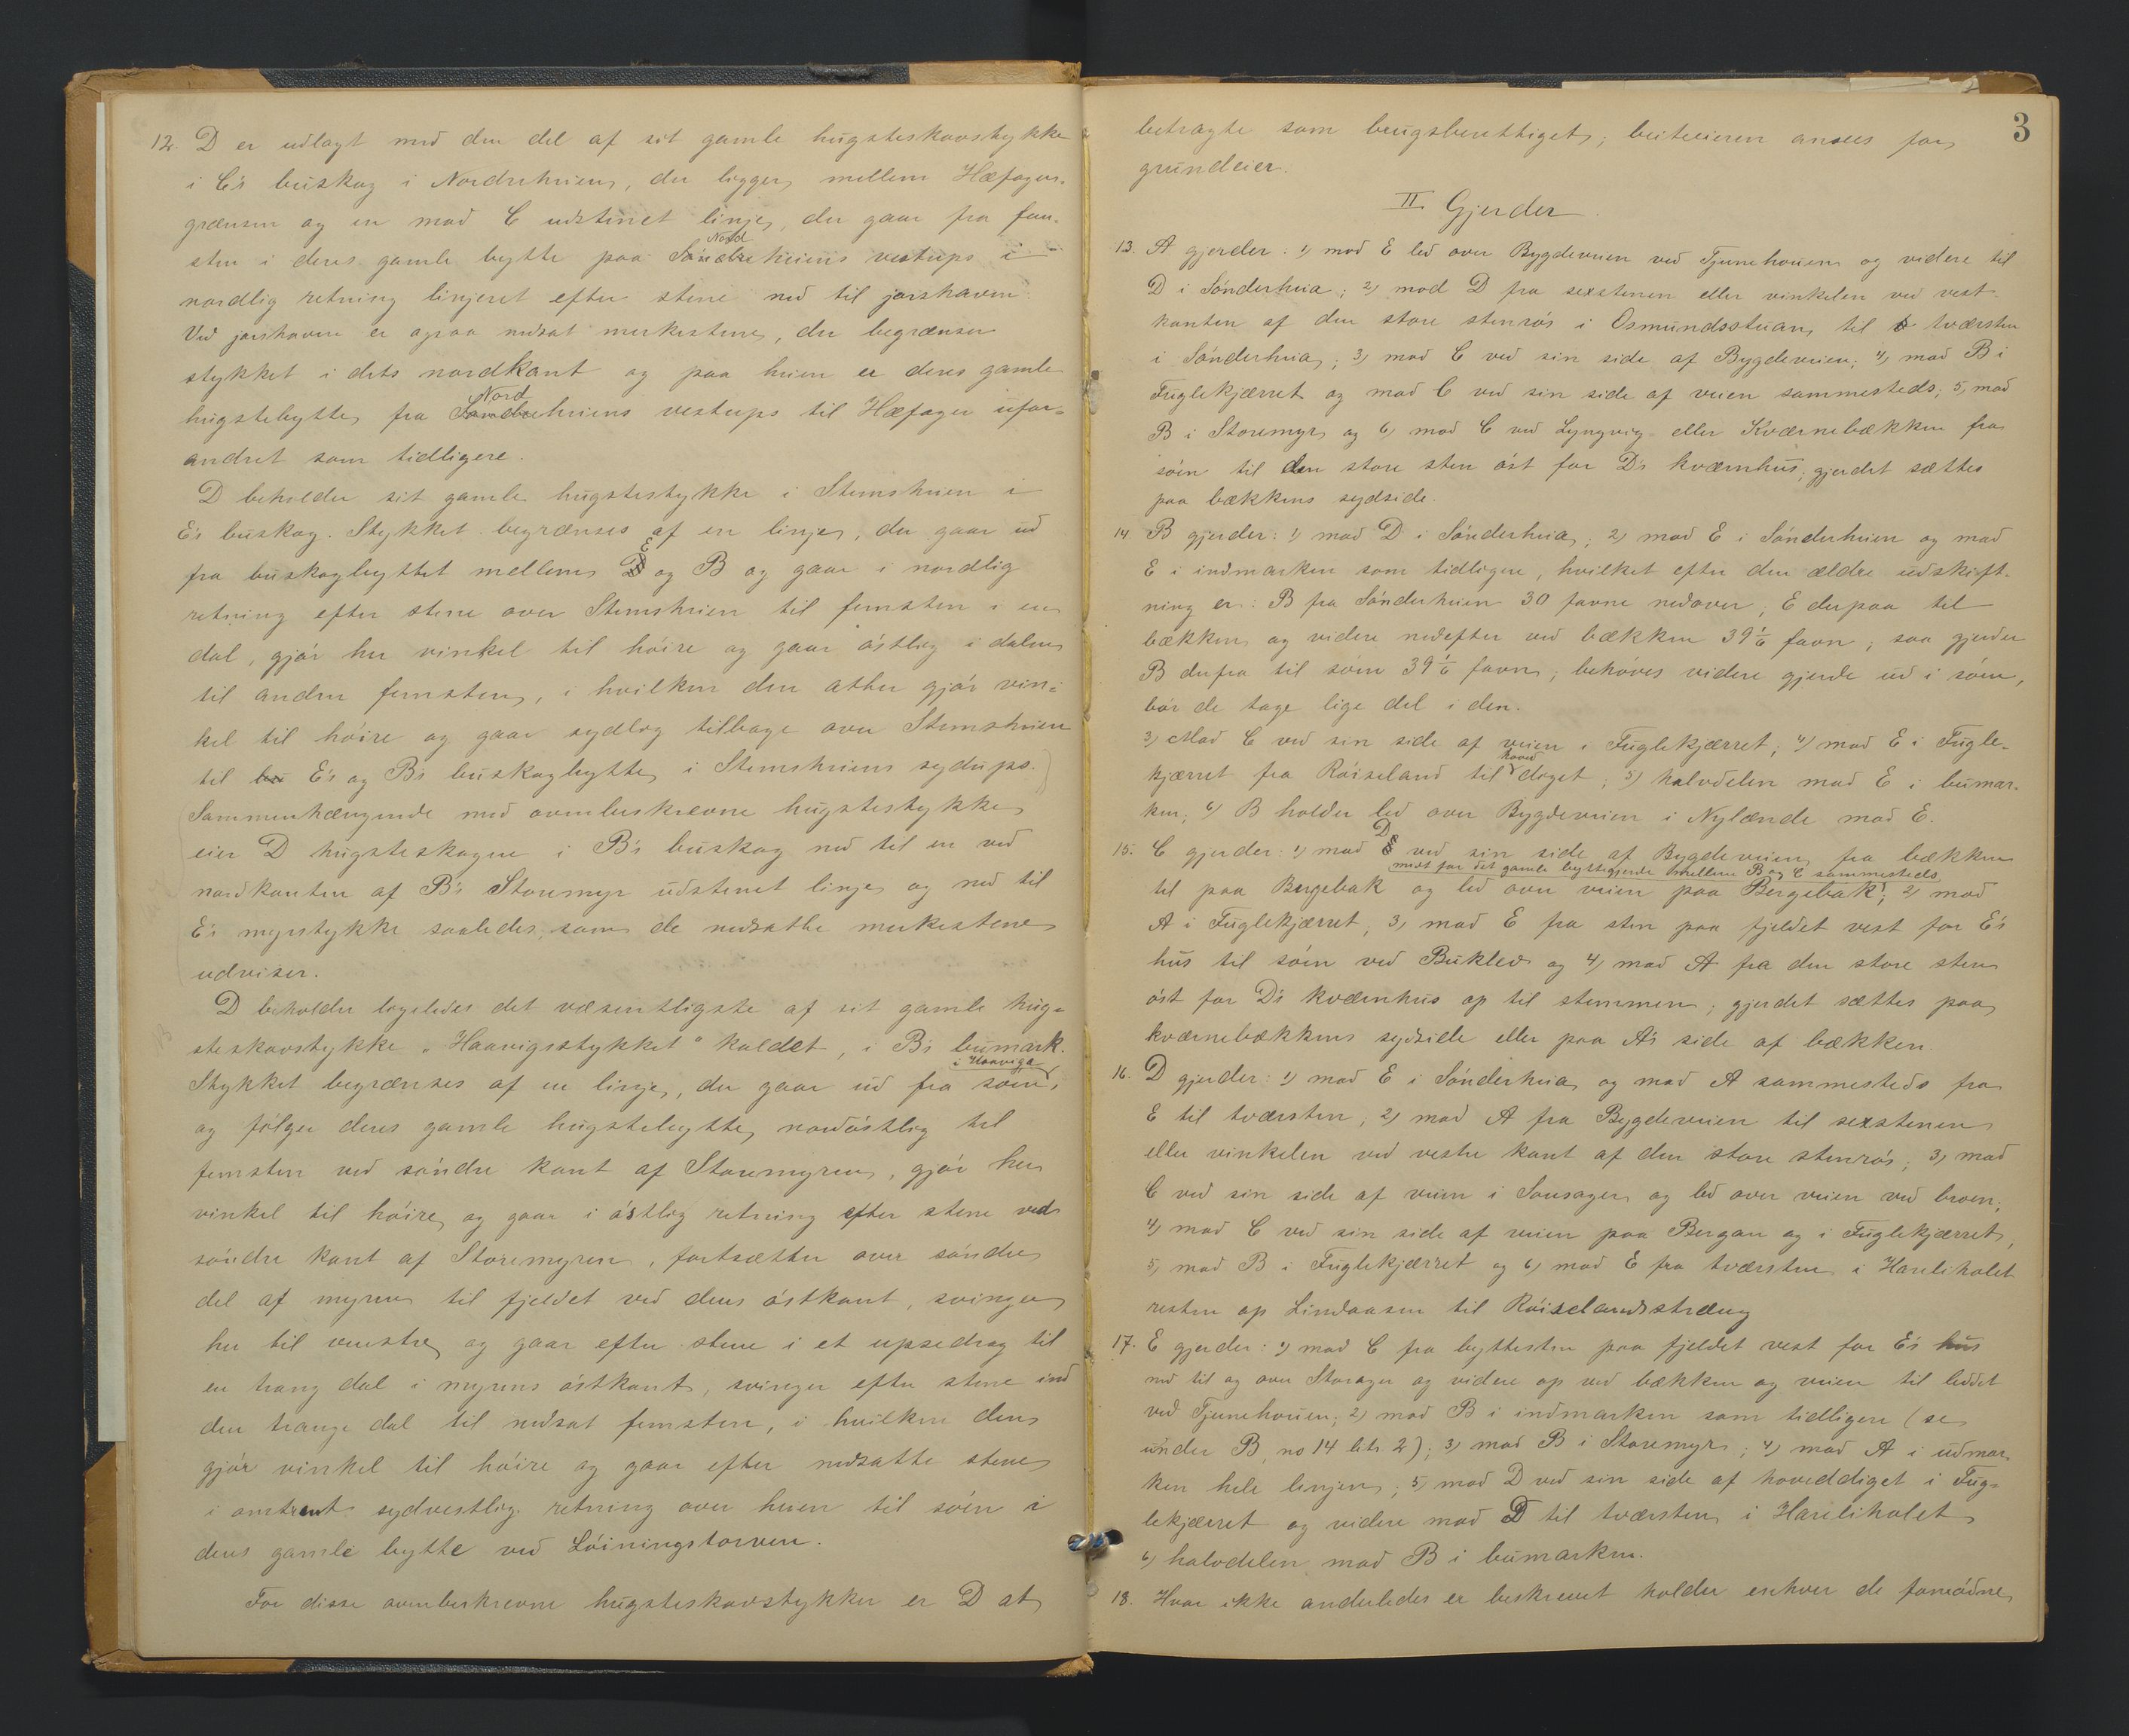 12. D er udlagt med den del af sit gamle hugsteskovstykke
i C's buskog i Nordreheien, der ligger mellem Hæfager-
grænsen og en mod C udstenet linje, der gaar fra fem-
sten i deres gamle bytte paa Nordreheiens vestups i
nordlig retning linjeret efter stene ned til jorshaven.
Ved jorshaven er ogsaa nedsat merkestene, der begrænser
stykket i dets nordkant og paa heien er deres gamle
hugstebytte fra Nordreheiens vestups til Hæfager ufor-
andret som tidligere.
D beholder sit gamle hugstestykke i Stemsheien i
E's buskog. Stykket begrænses af en linje, der gaar ud
fra buskogbyttet mellem E og B og gaar i nordlig
retning efter stene over Stemsheien til femsten i en
dal, gjør her vinkel til høire og gaar østlig i dalen
til anden femsten, i hvilken den atter gjør vin-
kel til høire og gaar sydlig tilbage over Stemsheien
til bu E's og B's buskogbytte i Stemsheiens sydups.
Sammenhængende med ovenbeskrevne hugstestykke
eier D hugsteskogen i B's buskog ned til en ved
nordkanten af B's Storemyr udstenet linje og ned til
E's myrstykke saaledes, som de nedsatte merkestene
udviser.
D beholder ligeledes det væsentligste af sit gamle hug-
steskovstykke "Haavigsstykket" kaldet, i B's bumark.
i Haaviga
Stykket begrænses af en linje, der gaar ud fra søen,
og følger deres gamle hugstebytte nordøstlig til
femsten ved søndre kant af Storemyren, gjør her
vinkel til høire og gaar i østlig retning efter stene ved
søndre kant af Storemyren, fortsætter over søndre
del af myren til fjeldet ved dens østkant, svinger
her til venstre og gaar efter stene i et upsedrag til
en trang dal i myrens østkant, svinger efter stene ind
den trange dal til nedsat femsten, i hvilken den
gjør vinkel til høire og gaar efter nedsatte stene
i omtrent sydvestlig retning over heien til søen i
dens gamle bytte ved Løiningstorven.
For disse ovenbeskrevne hugsteskovstykker er D at
3
betragte som brugsberettiget; beiteeieren ansees for
grundeier.
II. Gjerder
13. A gjerder: 1) mod E led over Bygdeveien ved Tjunehouen og videre til
D i Sønderheia; 2) mod D fra sexstenen eller vinkelen ved vest-
kanten af den store stenrøs i Osmundsstuan til tværsten
i Sønderheia; 3) mod C ved sin side af Bygdeveien; 4) mod B i
Fuglekjærret og mod C ved sin side af veien sammesteds; 5) mod
B i Storemyr og 6) mod C ved Lyngvig eller Kværnebækken fra
søen til den store sten øst for D's kværnhus; gjerdet sættes
paa bækkens sydside.
14. B gjerder: 1) mod D i Sønderheia; 2) mod E i Sønderheien og mod
E i indmarken som tidligere, hvilket efter den ældre udskift-
ning er: B fra Sønderheien 30 favne nedover, E derpaa til
bækken og videre nedefter ved bækken 39 1/6 favn, saa gjerder
B derfra til søen 39 1/6 favn; behøves videre gjerde ud i søen,
bør de tage lige del i den.
3) Mod C ved sin side af veien i Fuglekjærret; 4) mod E i Fugle-
hoved
kjærret fra Røiseland til diget; 5) halvdelen mod E i bumar-
ken; 6) B holder led over Bygdeveien i Nylænde mod E.
15. C gjerder: 1) mod D ved sin side af Bygdeveien fra bækken
midt for det gamle byttegjerde mellem B og C sammesteds
til paa Bergebak og led over veien paa Bergebak; 2) mod
A i Fuglekjærret, 3) mod E fra sten paa fjeldet vest for E's
hus til søen ved Buklev og 4) mod A fra den store sten
øst for D's kværnhus op til stemmen; gjerdet sættes paa
kværnebækkens sydside eller paa A's side af bækken.
16. D gjerder: 1) mod E i Sønderheia og mod A sammesteds fra
E til tværsten; 2) mod A fra Bygdeveien til sexstenen
eller vinkelen ved vestre kant af den store stenrøs; 3) mod
C ved sin side af veien i Sousager og led over veien ved broen;
4) mod C ved sin side af veien paa Bergan og i Fuglekjærret,
5) mod B i Fuglekjærret og 6) mod E fra tværsten i Hareliholet
resten op Lindaasen til Røiselandsstræng
17. E gjerder: 1) mod C fra byttesten paa fjeldet vest for E's hus
ned til og over Storager og videre op ved bækken og veien til leddet
ved Tjunehouen; 2) mod B i indmarken som tidligere (se
under B, no 14 litr. 2); 3) mod B i Storemyr; 4) mod A i udmar-
ken hele linjen; 5) mod D ved sin side af hoveddiget i Fug-
lekjærret og videre mod D til tværsten i Hareliholet
6) halvdelen mod B i bumarken.
18. Hvor ikke anderledes er beskrevet holder enhver de fornødne